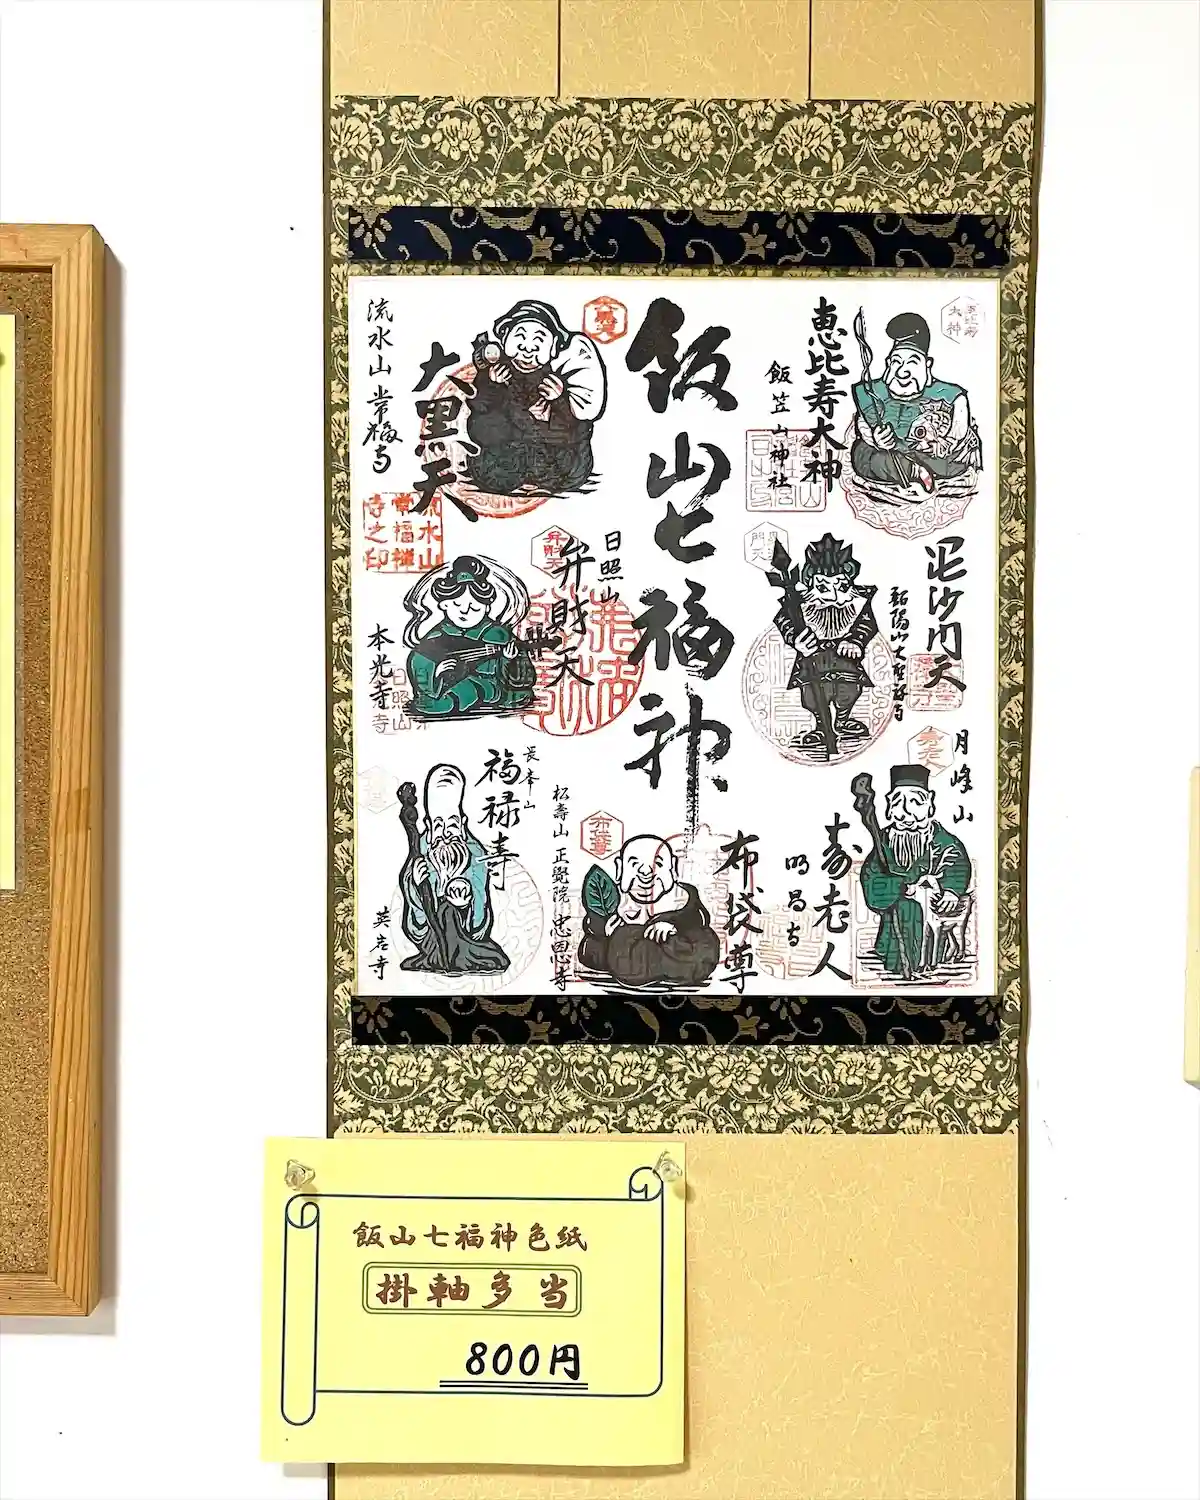 飯山七福神
恵比寿大神
飯笠山神社
毘沙門天
月峰山
寿老人
明昌寺
布袋尊
松壽山 正覺院 忠恩寺
日照山
弁財天
本光寺
長峯山
福禄寿
英岩寺
大黒天
流水山 常福寺
流水山
常福禅
寺之印
弁財天
飯山七福神色紙
掛軸多当
800円